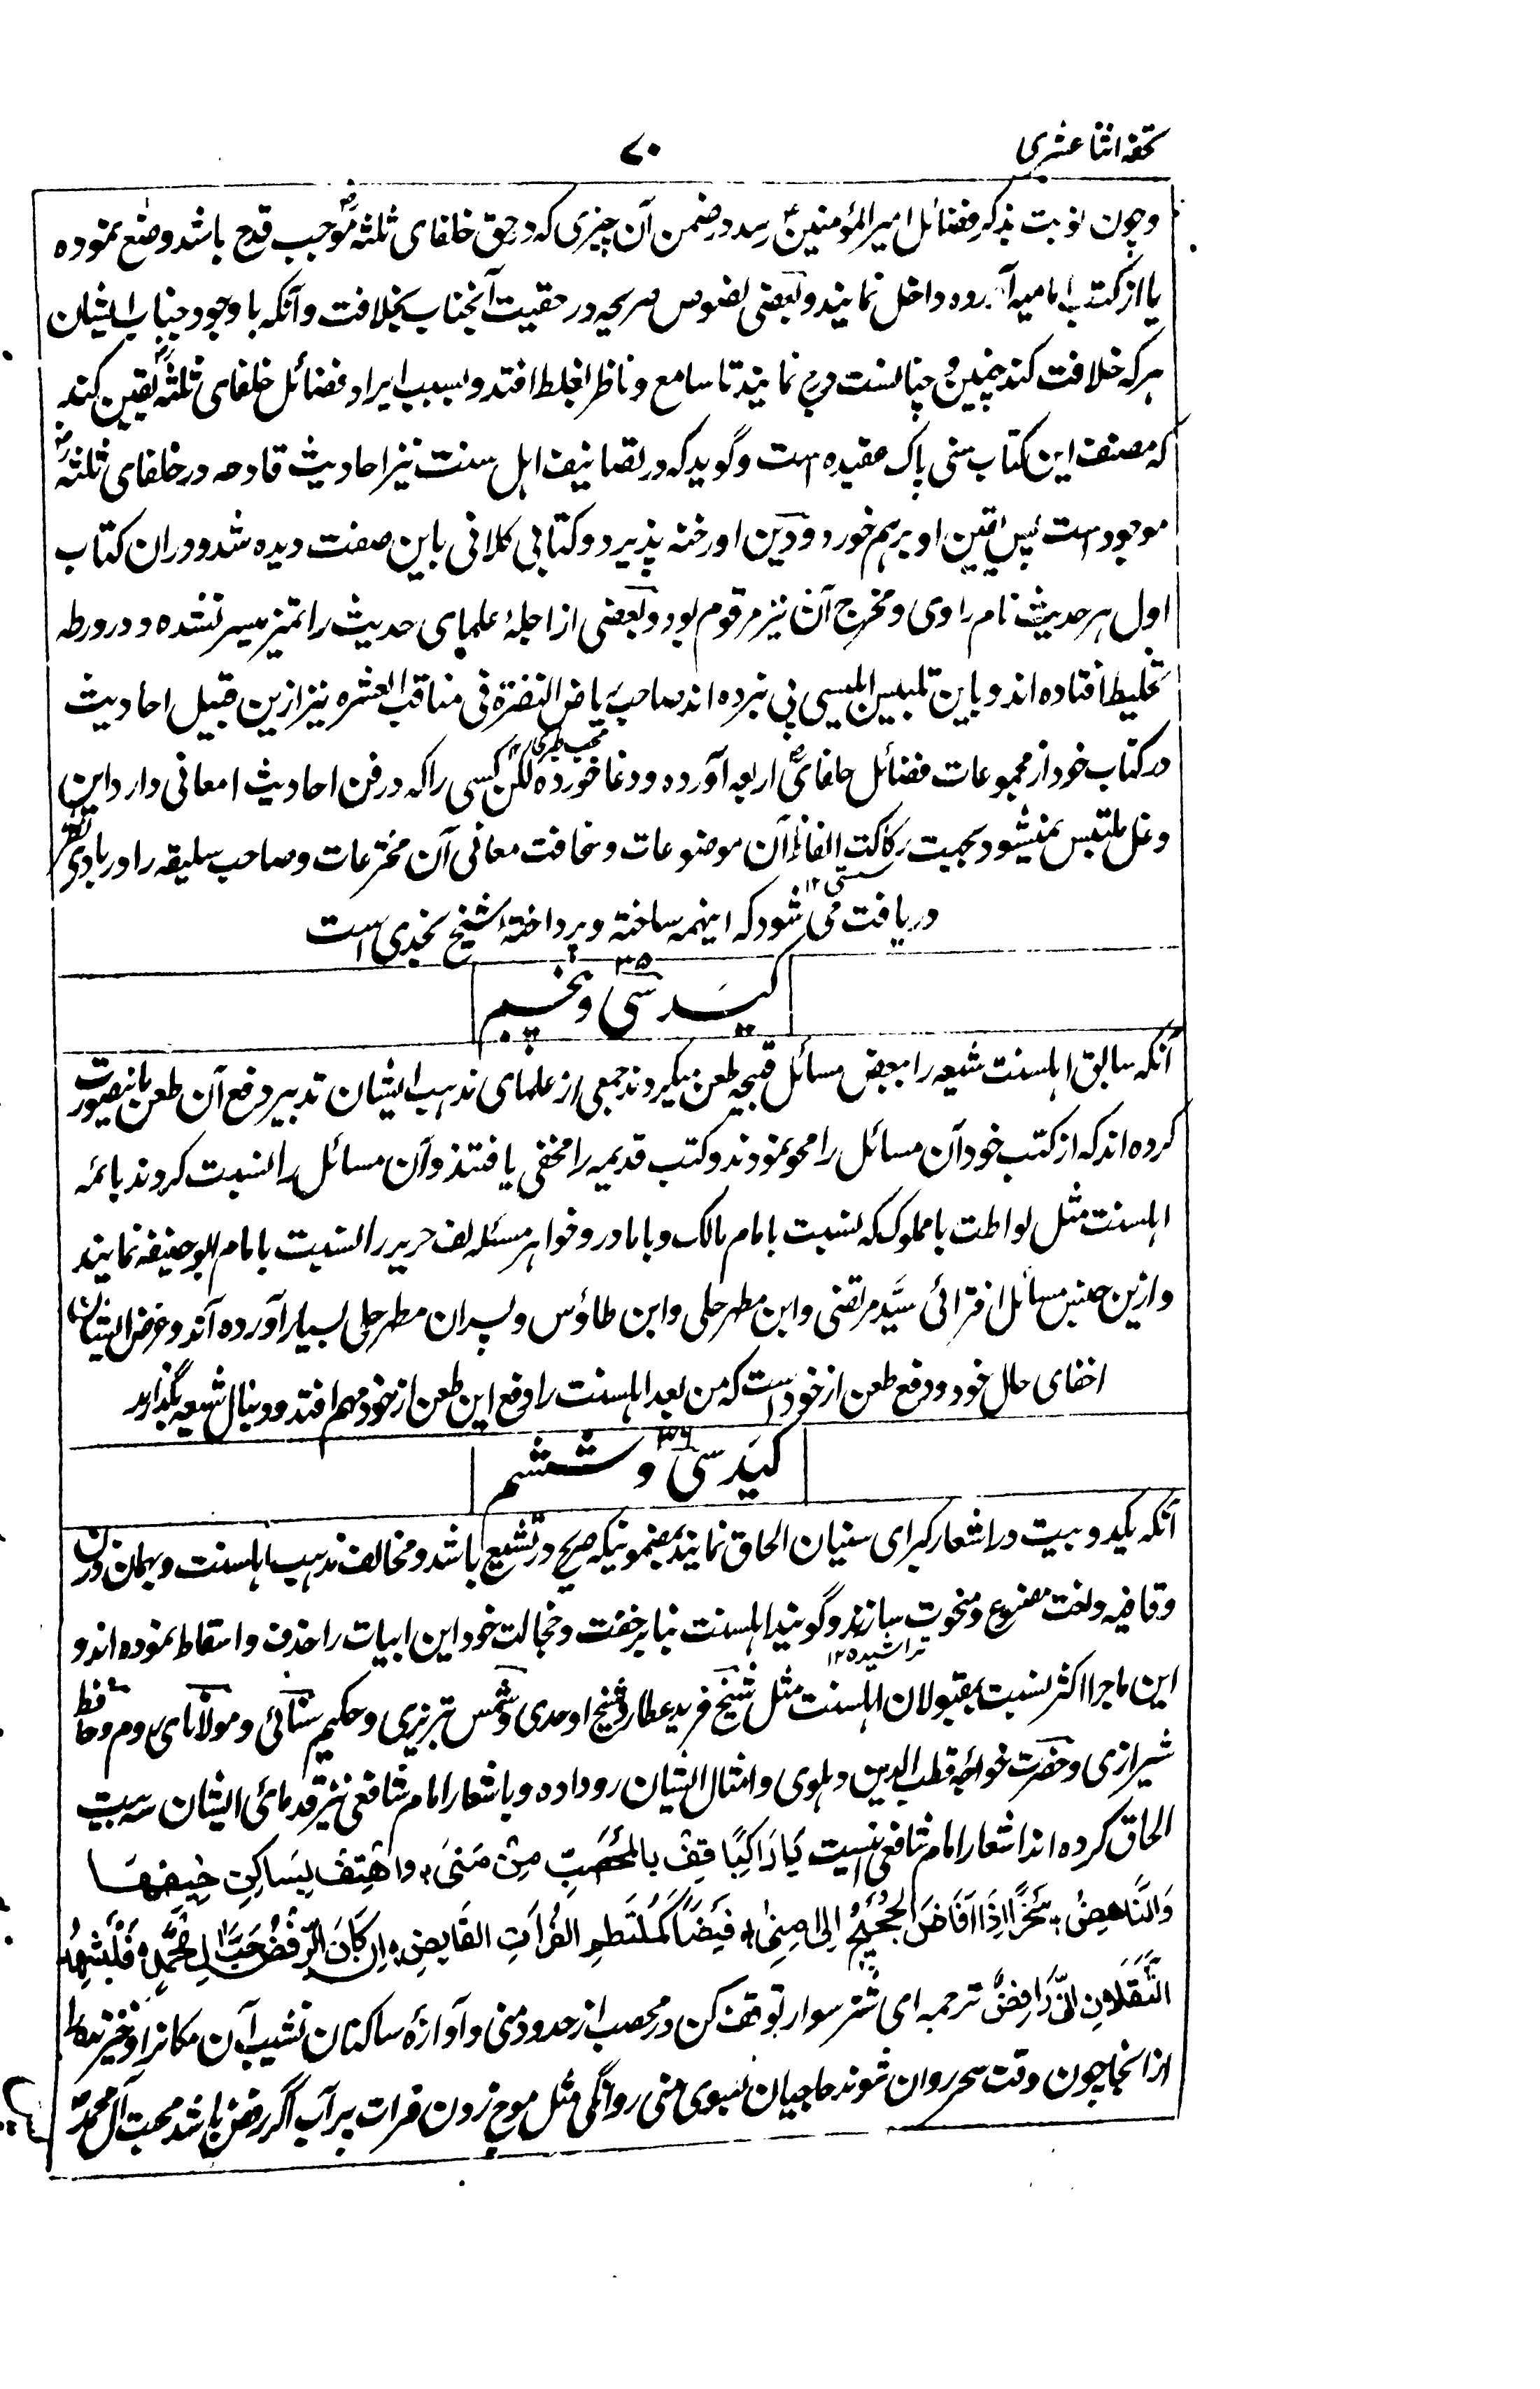 تحفه اثنا عشری
۷۰
و چون نوبت بذکر فضائل امیرالمؤمنین رسد در ضمن آن چیزی که در حق خلفای ثلثه موجب قدح باشد وضع نموده
یا از کتب امامیه آورده داخل نمایند و بعضی نصوص صریحه در حقیت آنجناب بخلافت و آنکه با وجود جناب ایشان
هر که خلافت کند چنین و چنانست درج نمایند تا سامع و ناظر بغلط افتد و بسبب ایراد فضائل خلفای ثلثه یقین کند
که مصنف این کتاب سنی پاک عقیده است و گوید که در تصانیف اهل سنت نیز احادیث قادحه در خلفای ثلثه
موجود است پس یقین او برهم خورد و دین او رخنه پذیرد و کتابی کلانی باین صفت دیده شد و دران کتاب
اول هر حدیث نام راوی و مخرج آن نیز مرقوم بود و بعضی از اجلهٔ علمای حدیث را تمیز میسر نشده و در ورطه
تخلیط افتاده اند و باین تلبیس ابلیسی پی نبرده اند صاحب ریاض النضرة فی مناقب العشره نیز ازین قبیل احادیث
در کتاب خود از مجموعات فضائل خلفای اربعه آورده و دغا خورده لکن کسی را که در فن احادیث امعانی دارد این
محب طبری ۱۲
دغل ملتبس نمیشود بجهت رکاکت الفاظ آن موضوعات و سخافت معانی آن مخترعات و صاحب سلیقه را در بادی نظر
سستی ۱۲
دریافت می شود که اینهمه ساخته و پرداختهٔ شیخ نجدی است
کید سی و پنجم ۳۵
آنکه سابق اهلسنت شیعه را ببعض مسائل قبیحه طعن میکردند جمعی از علمای مذهب ایشان تدبیر دفع آن طعن باینصورت
کرده اند که از کتب خود آن مسائل را محو نمودند و کتب قدیمه را مخفی یافتند و آن مسائل را نسبت کردند بائمه
اهلسنت مثل لواطت با مملوک که نسبت بامام مالک و با مادر و خواهر مسئله لف حریر را نسبت بامام ابو حنیفه نمایند
و ازین جنس مسائل افترائی سید مرتضی و ابن مطهر حلی و ابن طاؤس و پسران مطهر حلی بسیار آورده اند و غرض ایشان
اخفای حال خود و دفع طعن از خود است که من بعد اهلسنت را دفع این طعن از خود مهم افتد و دنبال شیعه بگذارند
کید سی و ششم ۳۶
آنکه یکدو بیت در اشعار کبرای سنیان الحاق نمایند بمضمونیکه صریح در تشیع باشد و مخالف مذهب اهلسنت و بهمان وزن
و قافیه و لغت مصنوع و منحوت سازند و گویند اهلسنت بنابر خفت و خجالت خود این ابیات را حذف و اسقاط نموده اند و
تراشیده ۱۲
این ماجرا اکثر نسبت بمقبولان اهلسنت مثل شیخ فرید عطار و شیخ اوحدی و شمس تبریزی و حکیم سنائی و مولانای روم و حافظ
شیرازی و حضرت خواجه قطب الدین دهلوی و امثال ایشان رو داده و باشعار امام شافعی نیز قدمائی ایشان سه بیت
الحاق کرده اند اشعار امام شافعی اینست یَا رَاکِبًا قِفْ بِالْمُحَصَّبِ مِنْ مَنیٰ وَاهْتِفْ بِسَاکِنِ خِیْفِهَا
وَالنَّاهِضِ سَحَرًا اِذَا اَفَاضَ الْحَجِیْجُ اِلٰی مِنیٰ فَیْضًا کَمُلْتَطِمِ الْفُرَاتِ الْفَایِضِ اِنْ کَانَ الرَّفْضُ حُبَّ اٰلِ مُحَمَّدٍ فَلْیَشْهَدِ
الثَّقَلَانِ اَنِّیْ رَافِضٌ ترجمه ای شتر سوار توقف کن در محصب از حدود منی و آوازه ساکنان نشیب آن مکان را
از انجا چون وقت سحر روان شوند حاجیان بسوی منی روانگی مثل موج زدن فرات پر آب اگر رفض باشد محبت آل محمد